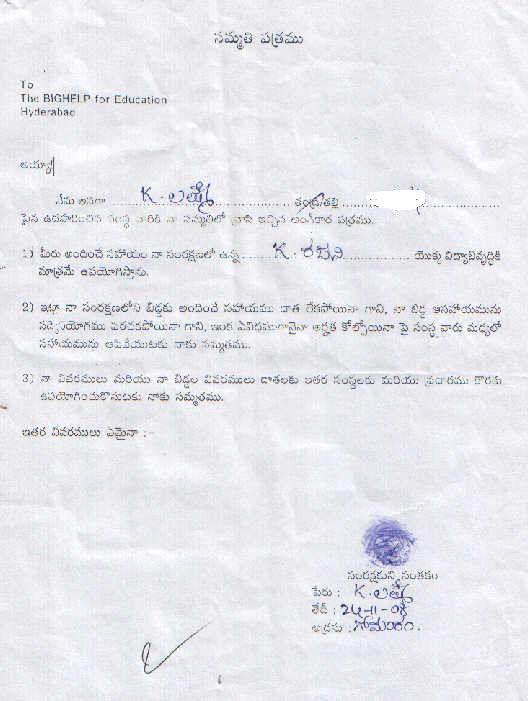 సమ్మతి పత్రము
To
The BIGHELP for Education
Hyderabad
అయ్యా!
నేను అనగా K. లక్ష్మి తండ్రి/తల్లి
పైన ఉదహరించిన సంస్థ వారికి నా సమ్మతితో వ్రాసి ఇచ్చిన అంగీకార పత్రము.
1) మీరు అందించే సహాయం నా సంరక్షణలో ఉన్న K. యొక్క విద్యాభివృద్ధికి
మాత్రమే ఉపయోగిస్తాను.
2) ఇట్లా నా సంరక్షణలోని బిడ్డకు అందించే సహాయము దాత లేకపోయినా గాని, నా బిడ్డ ఆసహాయమును
సద్వినియోగము పరచకపోయినా గాని, ఇంక ఏవిధముగానైనా అర్హత కోల్పోయినా పై సంస్థ వారు మధ్యలో
సహాయమును ఆపివేయుటకు నాకు సమ్మతము.
3) నా వివరములు మరియు నా బిడ్డల వివరములు దాతలకు ఇతర సంస్థలకు మరియు ప్రచారము కొరకు
ఉపయోగించుకొనుటకు నాకు సమ్మతము.
ఇతర వివరములు ఏమైనా :-
సంరక్షకుని సంతకం
పేరు : K. లక్ష్మి
తేదీ : 24-11-08
అడ్రసు : గోమారం.